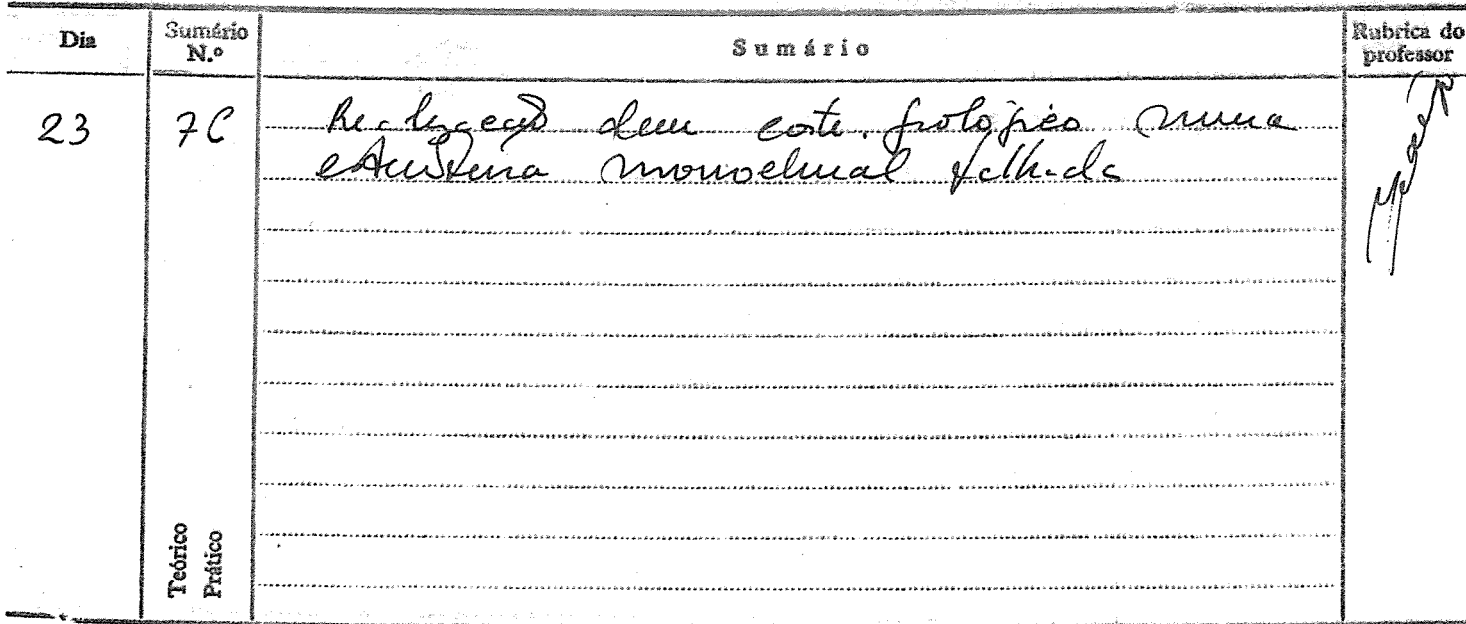 Dia
Sumário N.º
Sumário
Rubrica do professor
23
7C
Realização dum corte geológico numa
estrutura monoclinal falhada
Teórico
Prático